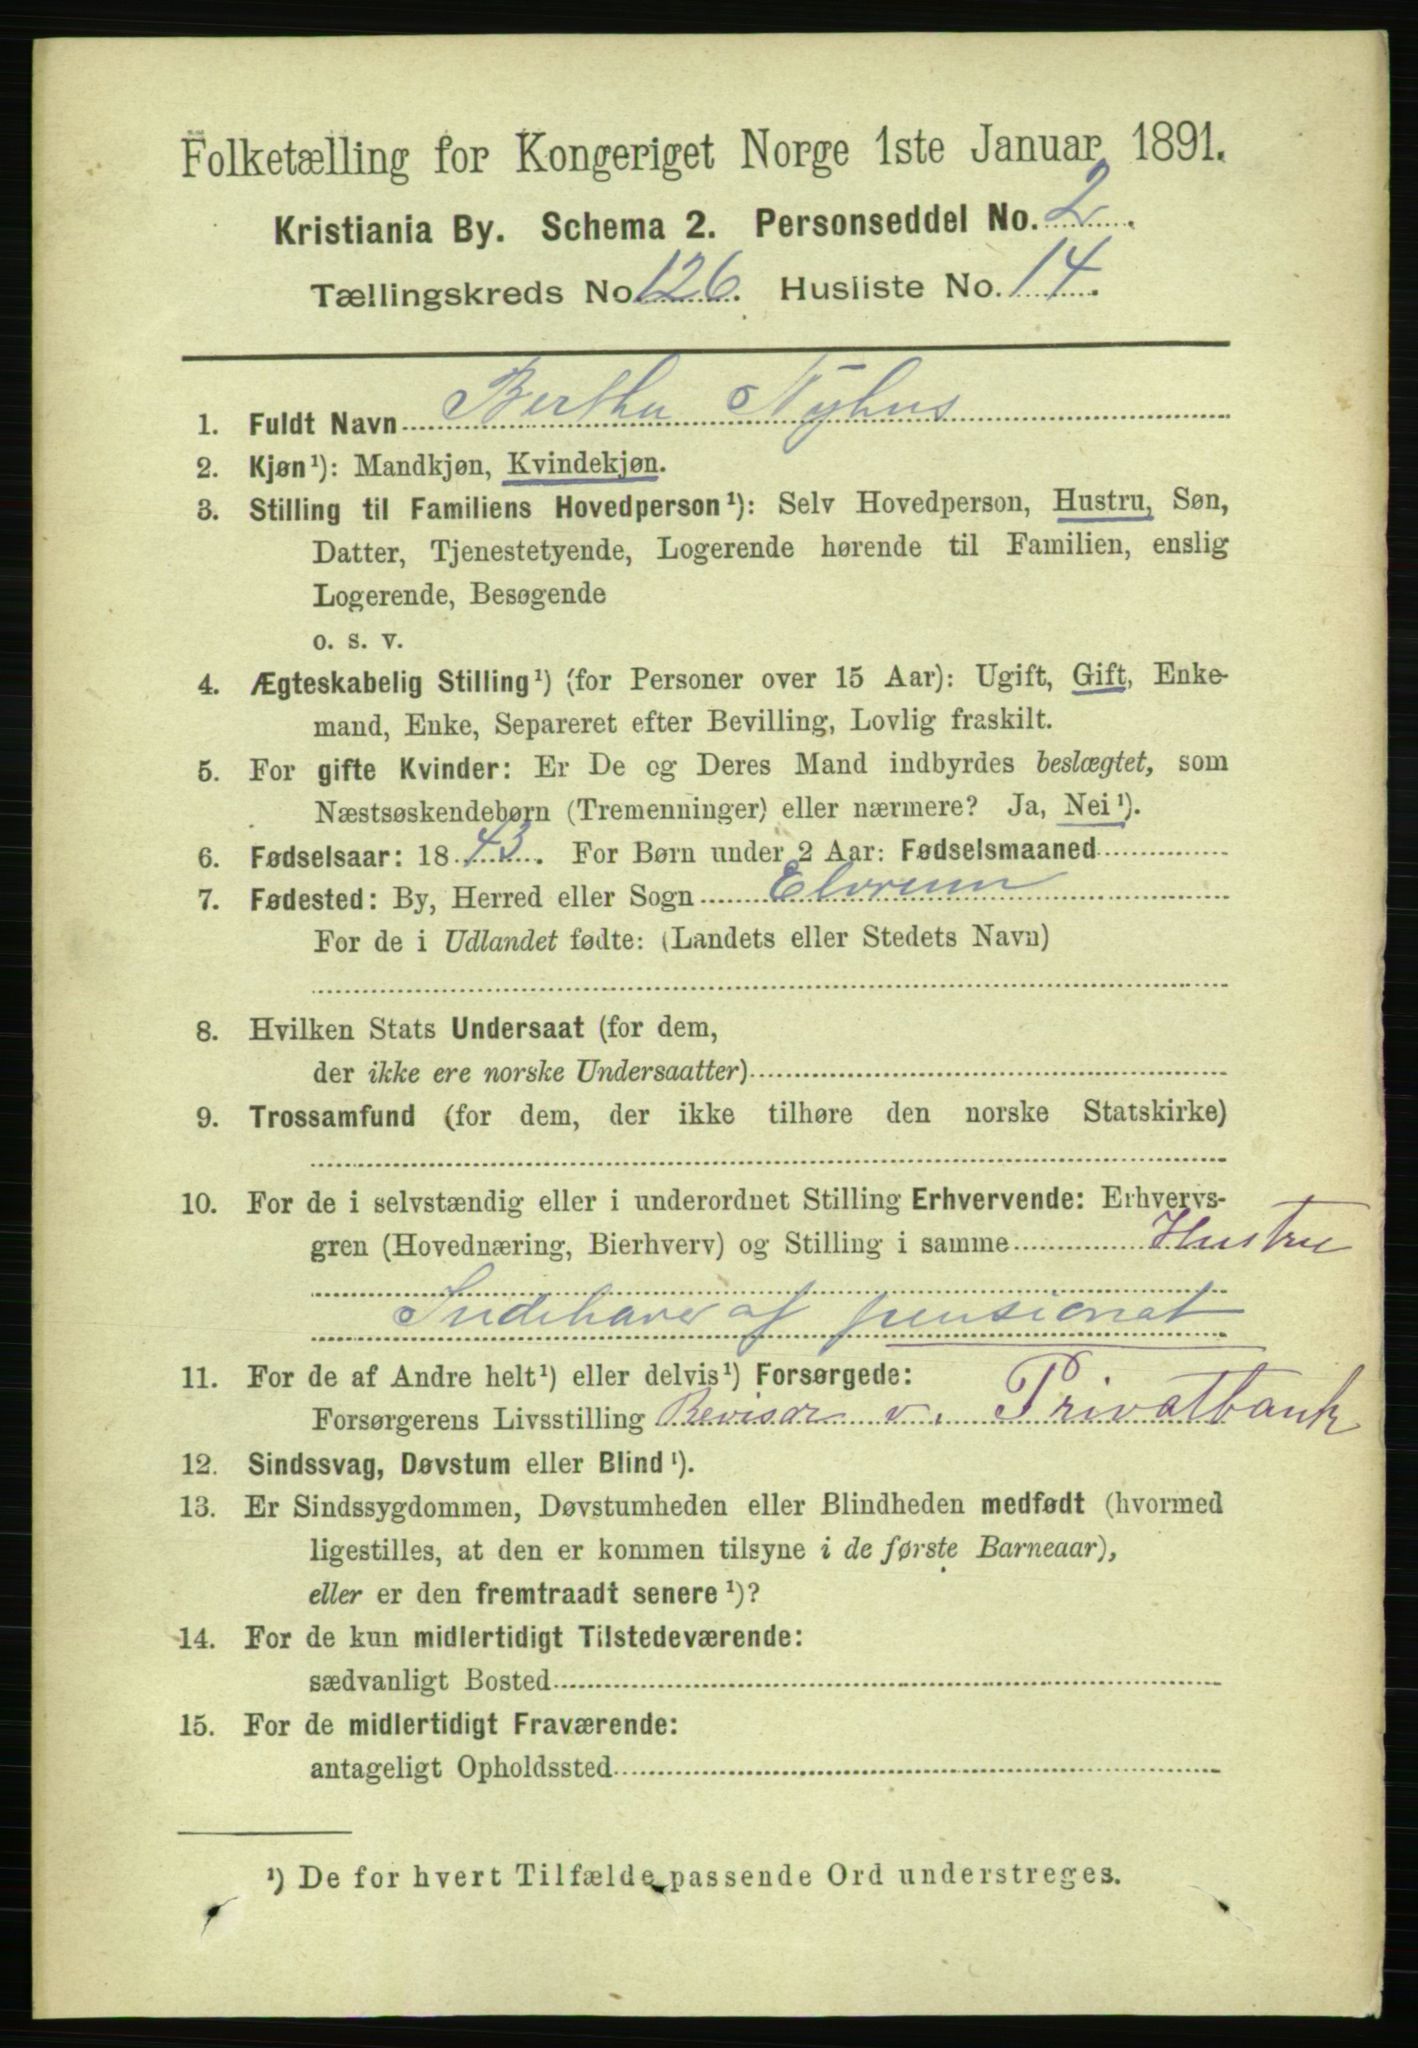 Folketælling for Kongeriget Norge 1ste Januar 1891.
Kristiania By. Schema 2. Personseddel No. 2.
Tællingskreds No. 126. Husliste No. 14.
1. Fuldt Navn Bertha Nyhus
2. Kjøn¹): Mandkjøn, Kvindekjøn.
3. Stilling til Familiens Hovedperson¹): Selv Hovedperson, Hustru, Søn,
Datter, Tjenestetyende, Logerende hørende til Familien, enslig
Logerende, Besøgende
o. s. v.
4. Ægteskabelig Stilling¹) (for Personer over 15 Aar): Ugift, Gift, Enke-
mand, Enke, Separeret efter Bevilling, Lovlig fraskilt.
5. For gifte Kvinder: Er De og Deres Mand indbyrdes beslægtet, som
Næstsøskendebørn (Tremenninger) eller nærmere? Ja, Nei¹).
6. Fødselsaar: 1843. For Børn under 2 Aar: Fødselsmaaned
7. Fødested: By, Herred eller Sogn Elvrum
For de i Udlandet fødte: (Landets eller Stedets Navn)
8. Hvilken Stats Undersaat (for dem,
der ikke ere norske Undersaatter)
9. Trossamfund (for dem, der ikke tilhøre den norske Statskirke)
10. For de i selvstændig eller i underordnet Stilling Erhvervende: Erhvervs-
gren (Hovednæring, Bierhverv) og Stilling i samme Hustru
Indehaver af pensionat
11. For de af Andre helt¹) eller delvis¹) Forsørgede:
Forsørgerens Livsstilling Revisor v. Privatbank
12. Sindssvag, Døvstum eller Blind¹).
13. Er Sindssygdommen, Døvstumheden eller Blindheden medfødt (hvormed
ligestilles, at den er kommen tilsyne i de første Barneaar),
eller er den fremtraadt senere¹)?
14. For de kun midlertidigt Tilstedeværende:
sædvanligt Bosted
15. For de midlertidigt Fraværende:
antageligt Opholdssted
¹) De for hvert Tilfælde passende Ord understreges.